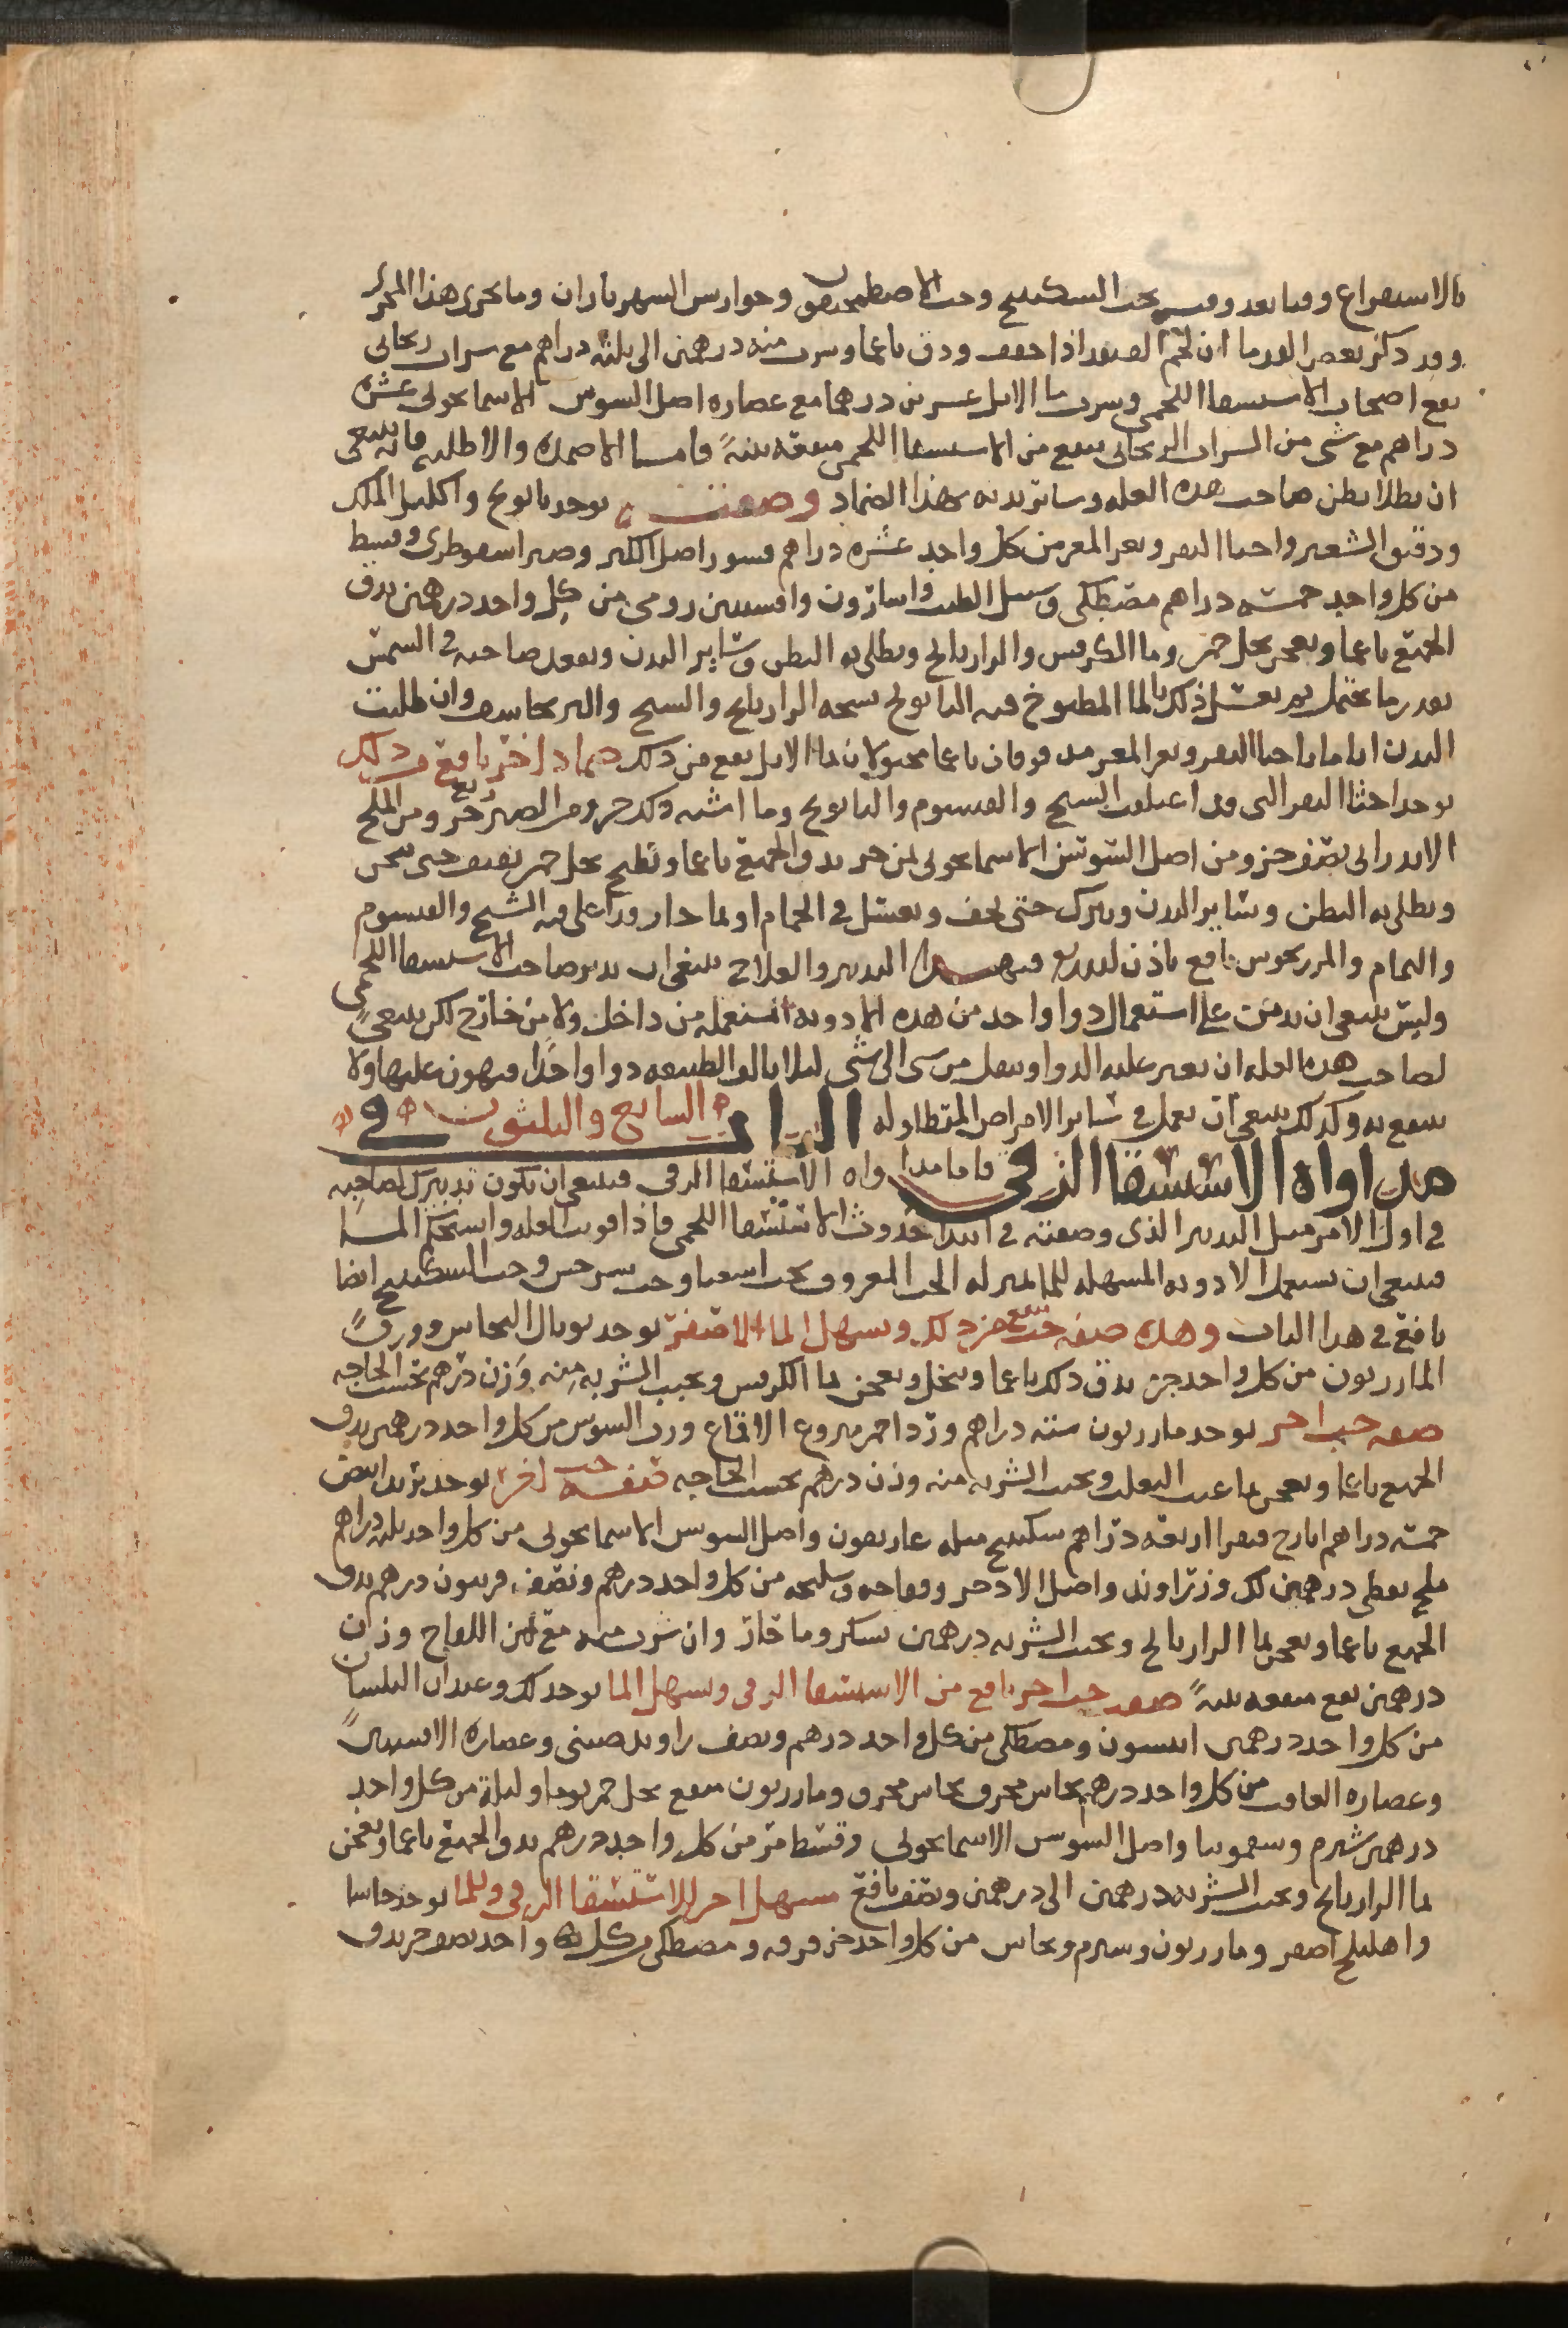 بالاستفراغ وقتا بعد وقت بحب السكبينج وحب الاصطمحيقون وجوارس الشهرياران وما يجرى هذا المجرى
وقد ذكر بعض القدما ان لحم القنفد اذا جفف ودق ناعما وشرب منه درهمين الى ثلثه دراهم مع شراب ريحانى
نفع اصحاب الاستسقا اللحمى وشرب ما الابل عشرين درهما مع عصاره اصل السوس الاسمانجونى عشره
دراهم مع شى من الشراب الريحانى ينفع من الاستسقا اللحمى منفعه بينة فاما الاضمده والاطليه فانه ينبغى
ان يطلا بطن صاحب هذه العله وسائر بدنه بهذا الضماد وصفته يوخذ بابونج واكليل الملك
ودقيق الشعير واخثا البقر وبعر المعز من كل واحد عشره دراهم قشور اصل الكبر وصبر اسقوطرى وقسط
من كل واحد خمسه دراهم مصطكى وسنبل الطيب واسارون وافسنتين رومى من كل واحد درهمين يدق
الجميع ناعما ويعجن بخل خمر وما الكرفس والرازيانج ويطلى به البطن وسائر البدن ويقعد صاحبه فى الشمس
بقدر ما يحتمل ثم يغسل ذلك بالما المطبوخ فيه البابونج الرازيانج والشيح والبرنجاسف وان طليت
البدن اياما باخثا البقر وبعر المعز مدقوقان ناعما معجونان بما الابل نفع من ذلك ضماد اخر نافع من ذلك
يوخذ اخثا البقر التى قد اعتلفت الشيح والقيسوم والبابونج وما اشبه ذلك جزو ومن الصبر ربع جزو ومن الملح
الاندرانى نصف جزو ومن اصل السوسن الاسمانجونى ثمن جزو يدق الجميع ناعما ويطبخ بخل خمر ثقيف حتى يثخن
ويطلى به البطن وسائر البدن ويترك حتى يجف ويغسل فى الحمام او بما حار وقد اغلى فيه الشيح والقيسوم
والنمام والمرزنجوش نافع باذن الله فبهذا التدبير والعلاج ينبغى ان يدبر صاحب الاستسقا اللحمى
وليس ينبغى ان يدمن على استعمال دوا واحد من هذه الادويه المستعمله من داخل ولا من خارج لكن ينبغى
لصاحب هذه العله ان يغير عليه الدوا وينقل من شى الى شى ليلا يالف الطبيعه دوا واحدا فيهون عليها ولا
ينتفع به وكذلك ينبغى ان يعمل فى سائر الامراض المتطاوله الباب السابع والثلثون فى
مداواه الاستسقا الزقى فاما مداواه الاستسقا الزقى فينبغى ان يكون تدبيرك لصاحبه
فى اول الامر مثل التدبير الذى وصفته فى ابتدا حدوث الاستسقا اللحمى فاذا قويت العله واستحكم الما
فينبغى ان يستعمل الادويه المسهله للما بمنزله الحب المعروف وحب السكبينج ايضا
نافع فى هذا الباب وهذه صفه حب ينفع من ذلك ويسهل الما الاصفر يوخذ توبال النحاس وورق
المازريون من كل واحد جزو يدق ذلك ناعما وينخل ويعجن بما الكرفس ويحبب الشربه منه وزن درهم بحسب الحاجه
صفه حب اخر يوخذ مازريون سته دراهم ورد احمر منزوع الاقماع ورب السوس من كل واحد درهمين يدق
الجميع ناعما ويعجن بما عنب الثعلب ويحبب الشربه منه وزن درهم بحسب الحاجه صفه حب اخر يوخذ تربد ابيض
خمسه دراهم ايارج فيقرا اربعه دراهم سكبينج مثله غاريقون واصل السوس الاسمانجونى من كل واحد ثلثه دراهم
ملح نفطى درهمين لك وزراوند واصل الاذخر وفقاحه وسليخه من كل واحد درهم ونصف فربيون درهم يدق
الجميع ناعما ويعجن بما الرازيانج ويحبب الشربه درهمين بسكر وما حار وان شرب منه مع لبن اللقاح وزن
درهمين نفع منفعه بينة صفه حب اخر نافع من الاستسقا الزقى ويسهل الما يوخذ لك وعيدان البلسان
من كل واحد درهمين انيسون ومصطكى من كل واحد درهم ونصف راوند صينى وعصاره الافسنتين
وعصاره الغافت من كل واحد درهم نحاس محرق ومازريون منقع بخل خمر يوما وليلة من كل واحد
درهمين شبرم وسقمونيا واصل السوسن الاسمانجونى وقسط مر من كل واحد درهم يدق الجميع ناعما ويعجن
بما الرازيانج ويحبب الشربه درهمين الى درهمين ونصف نافع مسهل اخر للاستسقا الزقى وللما يوخذ
واهليلج اصفر ومازريون وشبرم ونحاس من كل واحد جزو قرفه ومصطكى من كل واحد نصف جزو يدق